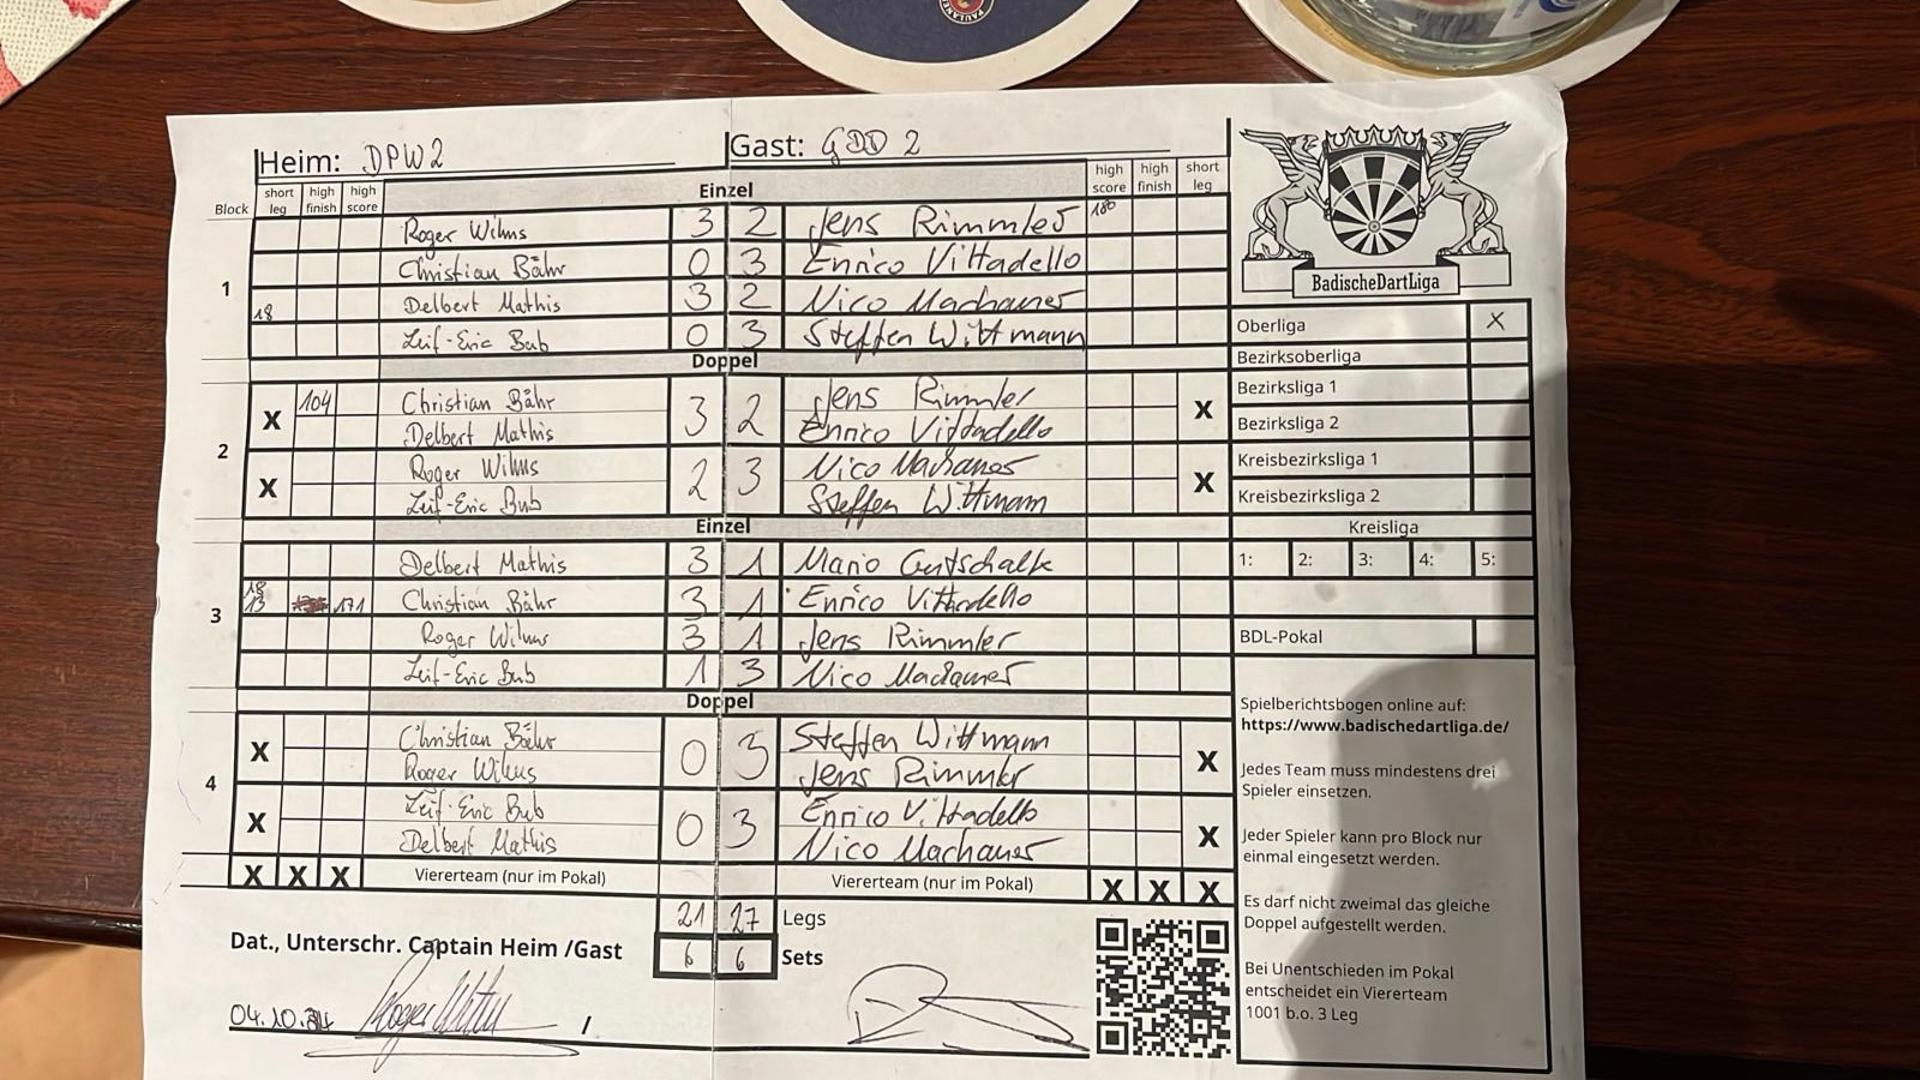 PAULANER
Heim: DPW2
Gast: GDD 2
Block
short leg
high finish
high score
Einzel
high score
high finish
short leg
1
Roger Wilms 3 2 Jens Rimmler 180
Christian Bähr 0 3 Enrico Vittadello
18 Delbert Mathis 3 2 Nico Machauer
Leif-Eric Bub 0 3 Steffen Wittmann
Doppel
2
X 104 Christian Bähr 3 2 Jens Rimmler X
Delbert Mathis Enrico Vittadello
X Roger Wilms 2 3 Nico Machauer X
Leif-Eric Bub Steffen Wittmann
Einzel
3
Delbert Mathis 3 1 Mario Gutschalk
18
13 171 Christian Bähr 3 1 Enrico Vittadello
Roger Wilms 3 1 Jens Rimmler
Leif-Eric Bub 1 3 Nico Machauer
Doppel
4
X Christian Bähr 0 3 Steffen Wittmann X
Roger Wilms Jens Rimmler
X Leif-Eric Bub 0 3 Enrico Vittadello X
Delbert Mathis Nico Machauer
X X X Viererteam (nur im Pokal) Viererteam (nur im Pokal) X X X
21 27 Legs
Dat., Unterschr. Captain Heim /Gast 6 6 Sets
04.10.24 /
BadischeDartLiga
Oberliga X
Bezirksoberliga
Bezirksliga 1
Bezirksliga 2
Kreisbezirksliga 1
Kreisbezirksliga 2
Kreisliga
1: 2: 3: 4: 5:
BDL-Pokal
Spielberichtsbogen online auf:
https://www.badischedartliga.de/
Jedes Team muss mindestens drei
Spieler einsetzen.
Jeder Spieler kann pro Block nur
einmal eingesetzt werden.
Es darf nicht zweimal das gleiche
Doppel aufgestellt werden.
Bei Unentschieden im Pokal
entscheidet ein Viererteam
1001 b.o. 3 Leg